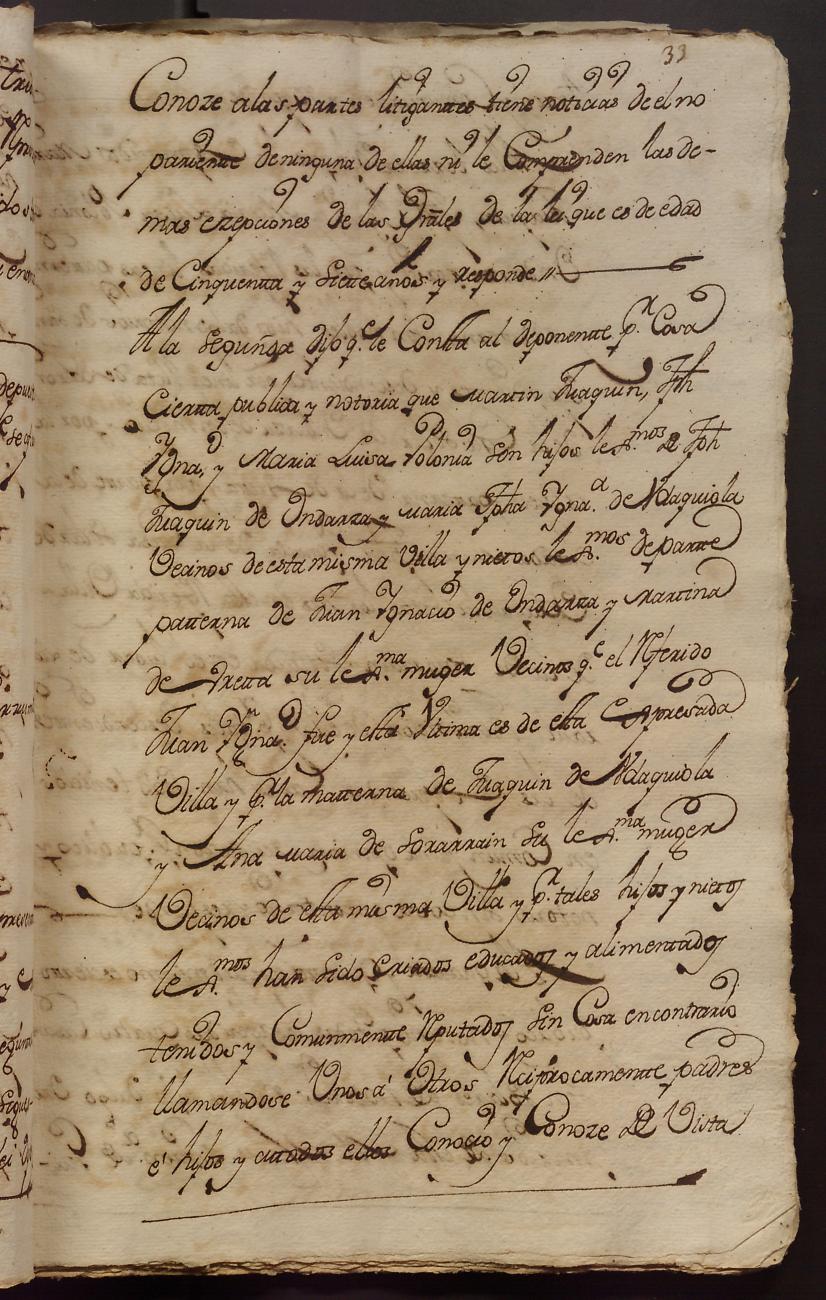 33
Conoze alas partes litigantes tiene noticias de el no
pariente deninguna de ellas ni le Comprenden las de-
mas ezepciones de las Grâles de la lei que es de edad
de Cinquenta y siette años y responde //
A la segunda dijo q.e le Consta al deponente p.r Cosa
Cierta publica y notoria que Martin Juaquin, Jph
Ygna,, y Maria Luisa Polonia son hijos lex.mos de Jph
Juaquin de Yndartta y Maria Jpha Ygna.a de Ydaquiola
Vecinos de esta misma Villa y nietos lex.mos de partte
patterna de Juan Ygnacio de Yndartta y Martina
de su lex.ma muger Vecinos q.e el Referido
Juan Ygna.o fue y esta Vltima es de esta Expresada
Villa y p.r la matterna de Juaquin de Ydaquiola
y Ana Maria de Sorarrain su lex.ma muger
Vecinos de esta misma Villa y p.r tales hijos y nietos
lex.mos han sido criados educados y alimentados
tenidos y Comunmente Reputados sin Cosa encontrario
llamandose Vnos á Otros Reciprocamente padres
é hijos y atodos ellos Conoció y Conoze de Vista